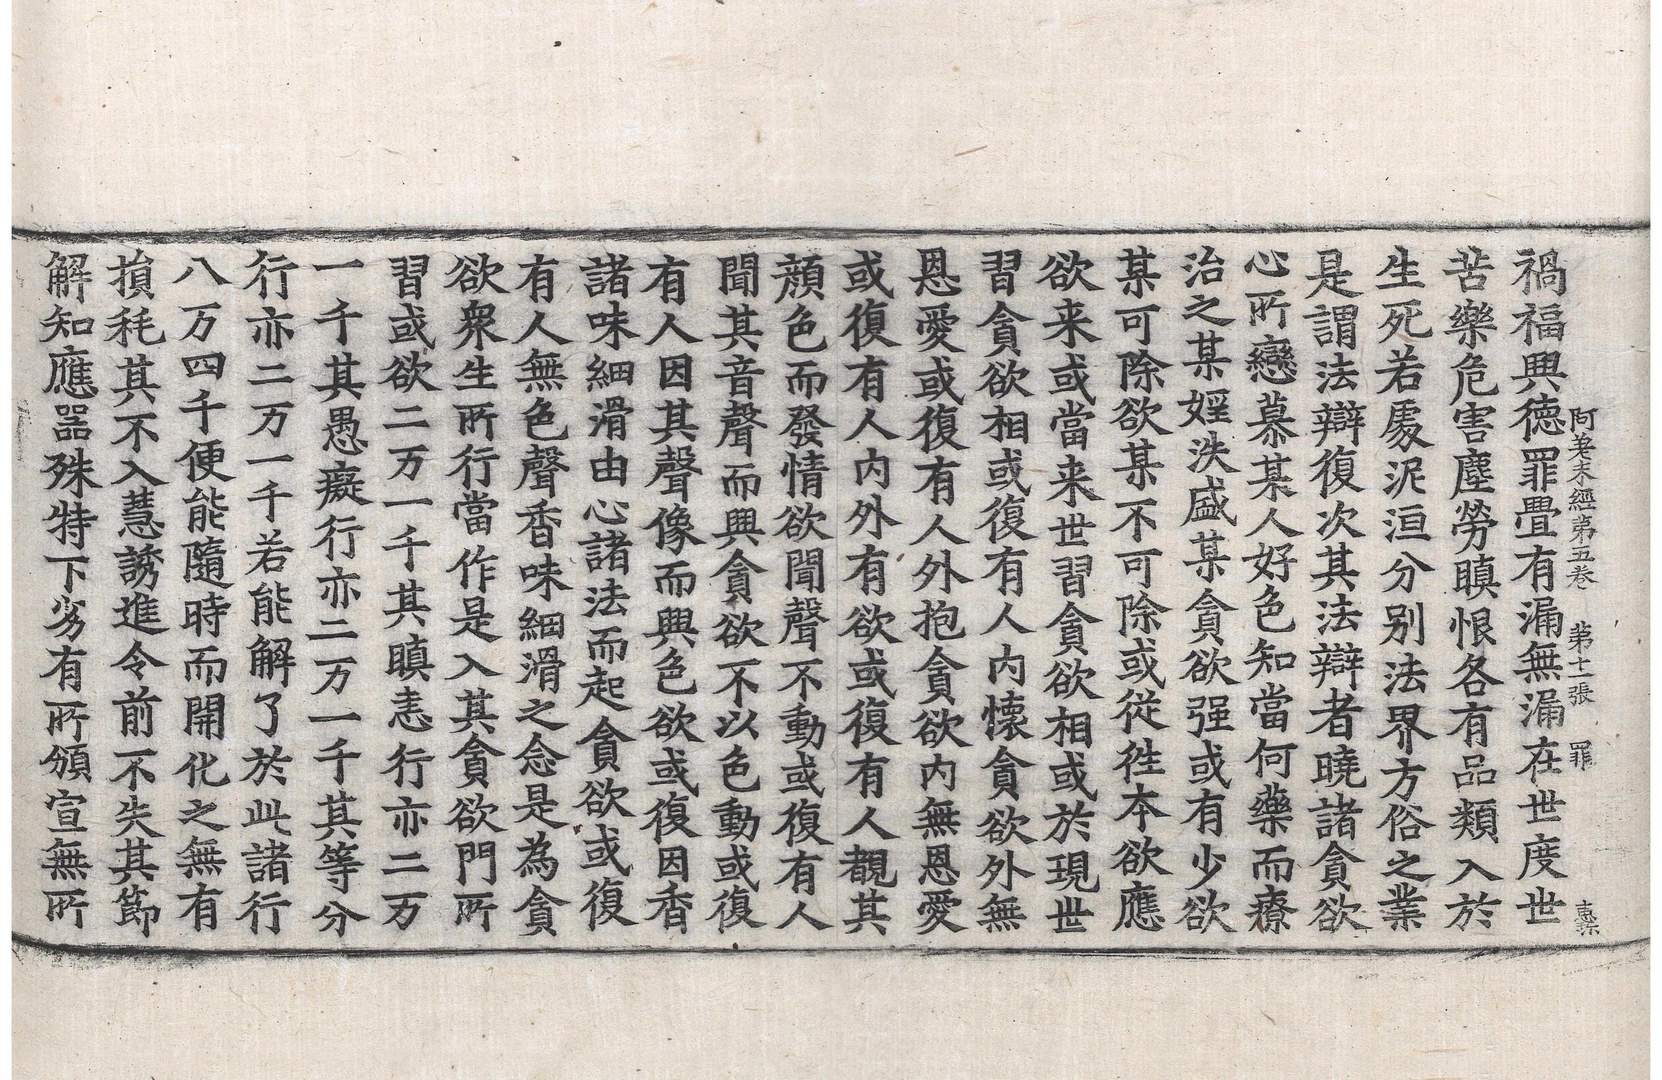 阿差末經第五卷 第十一張 罪
禍福興德罪疊有漏無漏在世度世
苦樂危害塵勞瞋恨各有品類入於
生死若處泥洹分别法界方俗之業
是謂法辯復次其法辯者曉諸貪欲
心所戀慕某人好色知當何藥而療
治之某婬泆盛某貪欲强或有少欲
某可除欲某不可除或從徃本欲應
欲来或當来世習貪欲相或於現世
習貪欲相或復有人内懐貪欲外無
恩愛或復有人外抱貪欲内無恩愛
或復有人内外有欲或復有人覩其
顔色而發情欲聞聲不動或復有人
聞其音聲而興貪欲不以色動或復
有人因其聲像而興色欲或復因香
諸味細滑由心諸法而起貪欲或復
有人無色聲香味細滑之念是為貪
欲衆生所行當作是入其貪欲門所
習或欲二万一千其瞋恚行亦二万
一千其愚癡行亦二万一千其等分
行亦二万一千若能解了於此諸行
八万四千便能隨時而開化之無有
損耗其不入慧誘進令前不失其節
解知應器殊特下劣有所頒宣無所